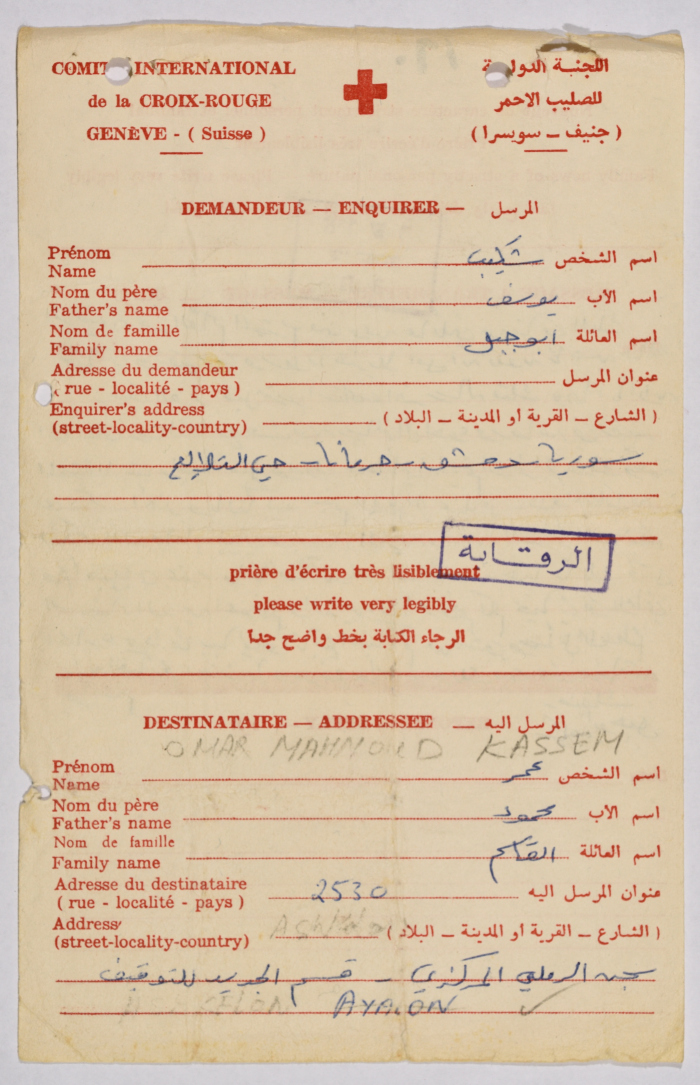 COMITÉ INTERNATIONAL
de la CROIX-ROUGE
GENÈVE - ( Suisse )
اللجنة الدولية
للصليب الاحمر
( جنيف – سويسرا )
DEMANDEUR — ENQUIRER — المرسل
Prénom
Name شكيب اسم الشخص
Nom du père
Father's name يوسف اسم الأب
Nom de famille
Family name ابو جبل اسم العائلة
Adresse du demandeur
( rue - localité - pays ) عنوان المرسل
Enquirer's address
(street-locality-country) ( الشارع – القرية او المدينة – البلاد )
سوريا - دمشق - جرمانا - حي
الرقابة
prière d'écrire très lisiblement
please write very legibly
الرجاء الكتابة بخط واضح جدا
DESTINATAIRE — ADDRESSEE — المرسل اليه
OMAR MAHMOUD KASSEM
Prénom
Name عمر اسم الشخص
Nom du père
Father's name محمود اسم الأب
Nom de famille
Family name القاسم اسم العائلة
Adresse du destinataire
( rue - localité - pays ) 2530 عنوان المرسل اليه
Address
(street-locality-country) ( الشارع – القرية او المدينة – البلاد )
سجن الرملي المركزي - قسم الجديد للتوقيف
AYALON ✓